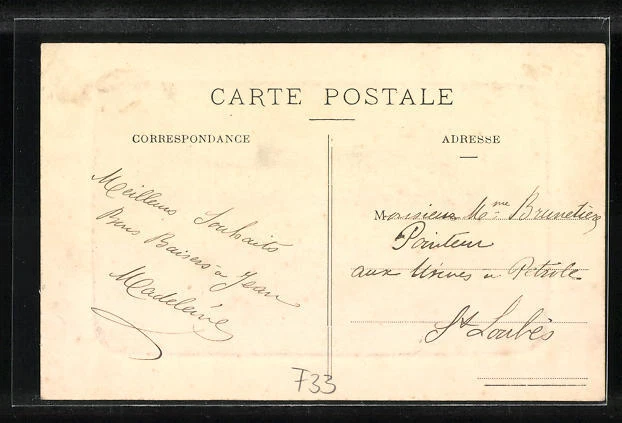 CARTE POSTALE
CORRESPONDANCE
ADRESSE
Meilleurs Souhaits
Bons Baisers à Jean
Madeleine
Monsieur Mme Brunetier
Pointeur
aux Usines à Pétrole
St Loubès
F33